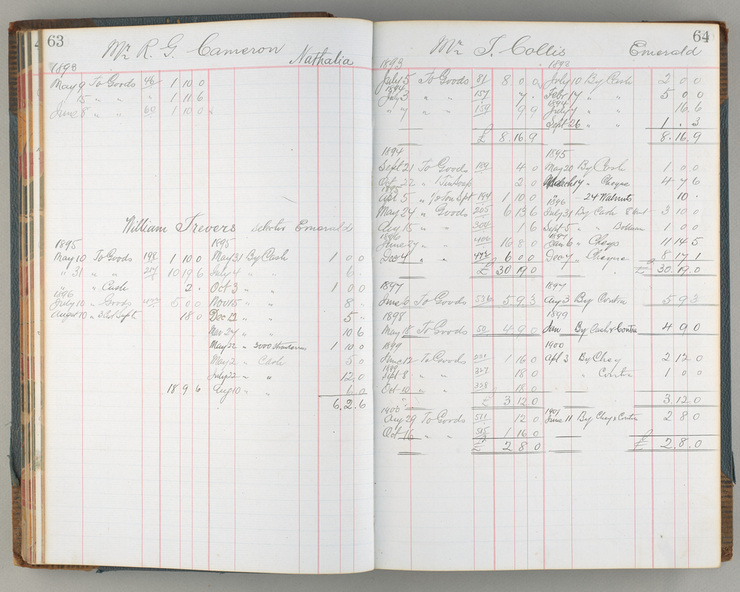 63
Mr R. G. Cameron Nathalia
1893
May 9 To Goods 46 1 10 0
15 " " 1 11 6
June 8 " " 60 1 10 0
William Trevers Emerald
1895 1895
May 10 To Goods 198 1 10 0 May 31 By Cash 1 0 0
" 31 " " 10 19 6 July 4 " 6
" Cash 2 . 0 Oct 3 " 1 0 0
1896
July 10 " Goods 5 0 0 Nov 15 " 8
Augst 10 " 18 0 Dec 12 " 5
10 6
3000 1 10 0
May 2 " Cash 5 0
July 22 " " 12 0
18 9 6 Aug 10 " " 6 0
6 . 2 . 6
64
Mr T. Collis Emerald
1893 1893
July 5 To Goods 81 8 0 0 July 10 By Cash 2 0 0
1894
July 3 " " 157 7 " Febr 17 " " 5 0 0
1894
" 7 " " 159 9 9 July 7 " " 16 . 6
Sept 26 " " 1 . 3
£ 8 . 16 . 9 8 . 16 . 9
1894 1895
Sept 21 To Goods 4 0 May 20 By Cash 1 0 0
Oct 22 " 2 0 17 " Cheque 4 7 6
1895 1896
Oct 5 " 194 1 10 0 " 24 Walnuts 10 .
May 24 " Goods 205 6 13 6 July 31 By Cash 3 10 0
Aug 15 " " 1 6 Sept 5 " 1 0 0
1896 1897
June 27 " " 16 8 0 Jan 6 " Cheqe 11 14 5
Dec 4 " " 6 0 0 Dec 7 " Cheque 8 17 1
£ 30 19 0 £ 30 . 19 . 0
1897 1897
June 3 To Goods 536 5 9 3 Aug 3 By Contra 5 9 3
1898 1899
May 18 To Goods 4 9 0 Jan By Cash & Contra 4 9 0
1899 1900
June 12 To Goods 1 16 0 Apl 3 By Cheq 2 12 0
Sept 8 " " 327 18 0 " Contra 1 0 0
Oct 10 " " 328 18 0
£ 3 12 0 3 . 12 . 0
1900 1901
Aug 29 To Goods 511 12 0 June 11 By Cheq & Contra 2 8 0
Oct 16 " " 515 1 16 0
£ 2 8 0 £ 2 . 8 . 0